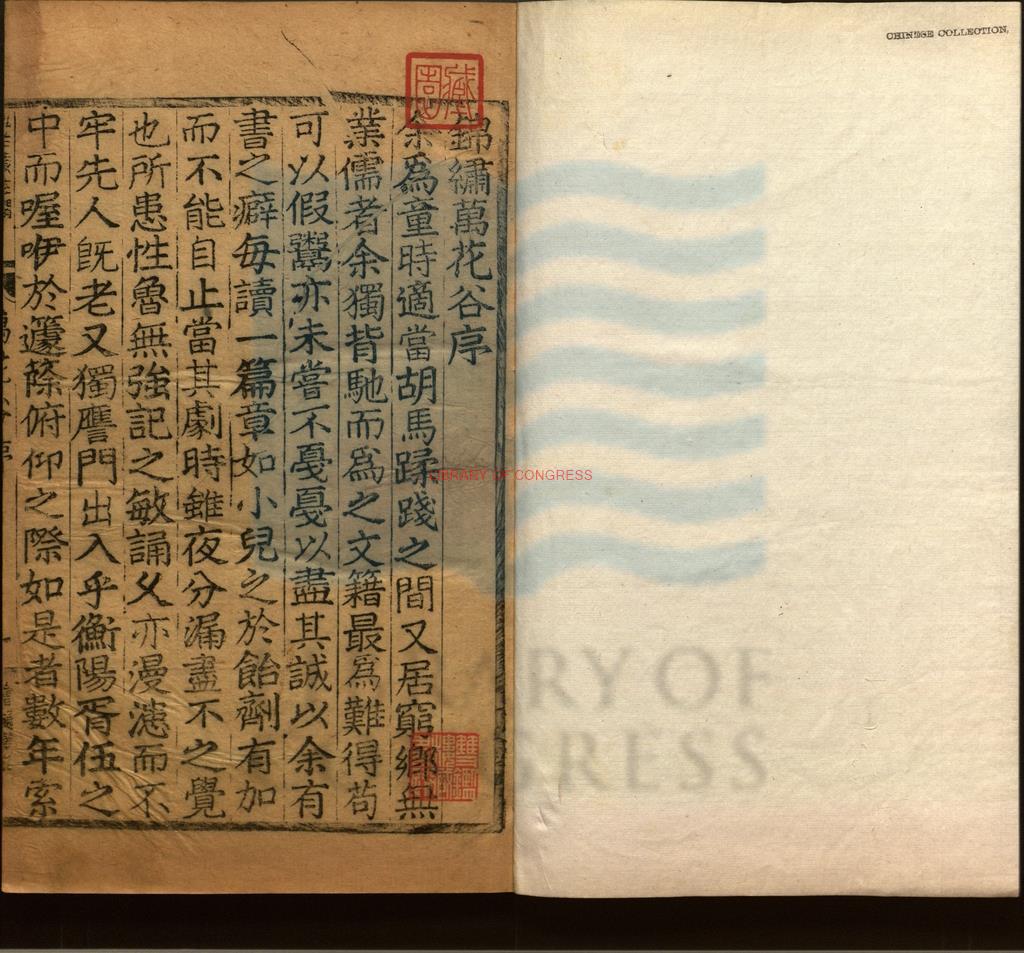 錦繡萬花谷序
余爲童時適當胡馬蹂踐之間又居窮鄉無
業儒者余獨背馳而爲之文籍最爲難得苟
可以假鬻亦未嘗不戛戛以盡其誠以余有
書之癖每讀一篇章如小兒之於飴劑有加
而不能自止當其劇時雖夜分漏盡不之覺
也所患性魯無強記之敏誦乆亦漫漶而不
牢先人旣老又獨鴈門出入乎衡陽胥伍之
中而喔咿於籧篨俯仰之際如是者數年索
CHINESE COLLECTION.
LIBRARY OF CONGRESS
RY OF
GRESS